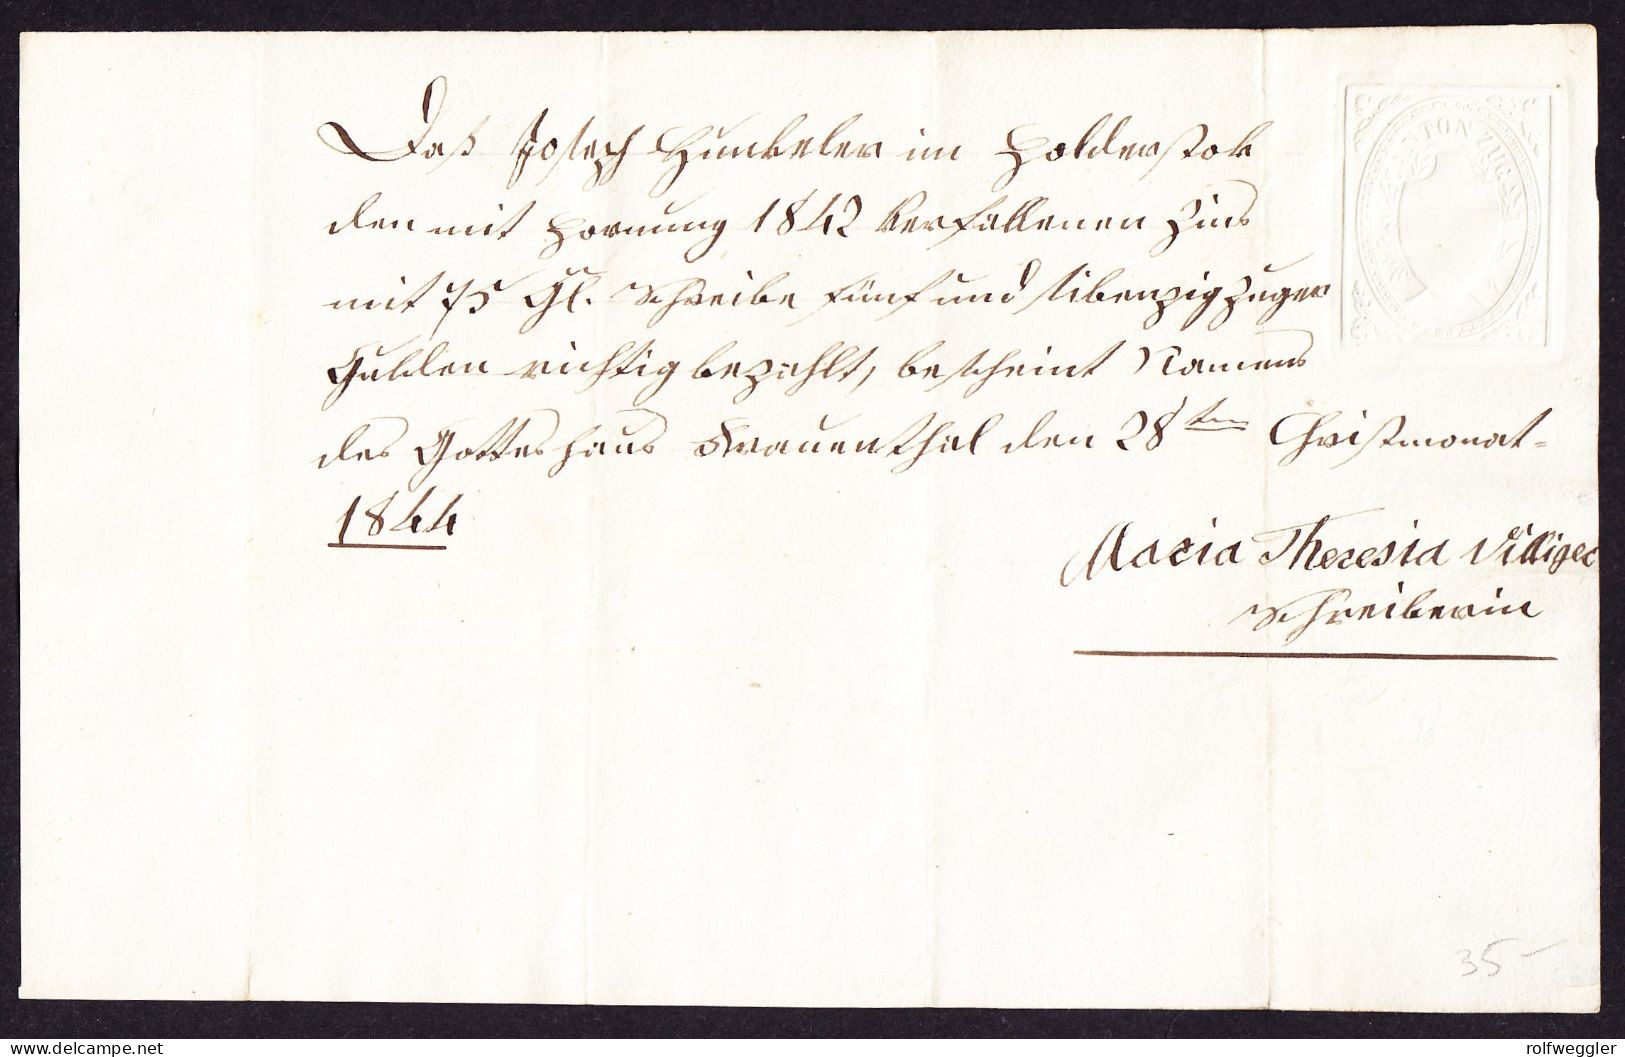 Daß Joseph Hunkeler im Holderstok
den mit Hornung 1842 verfallenen Zins
mit 75 Gl. schreibe fünf und sibenzig Zuger
Gulden richtig bezahlt, bescheint Namens
des Gotteshaus Frauenthal den 28ten Christmonat
1844
Maria Theresia Villiger
Schreiberin
KANTON ZUG
35-
delcampe.net
rolfweggler